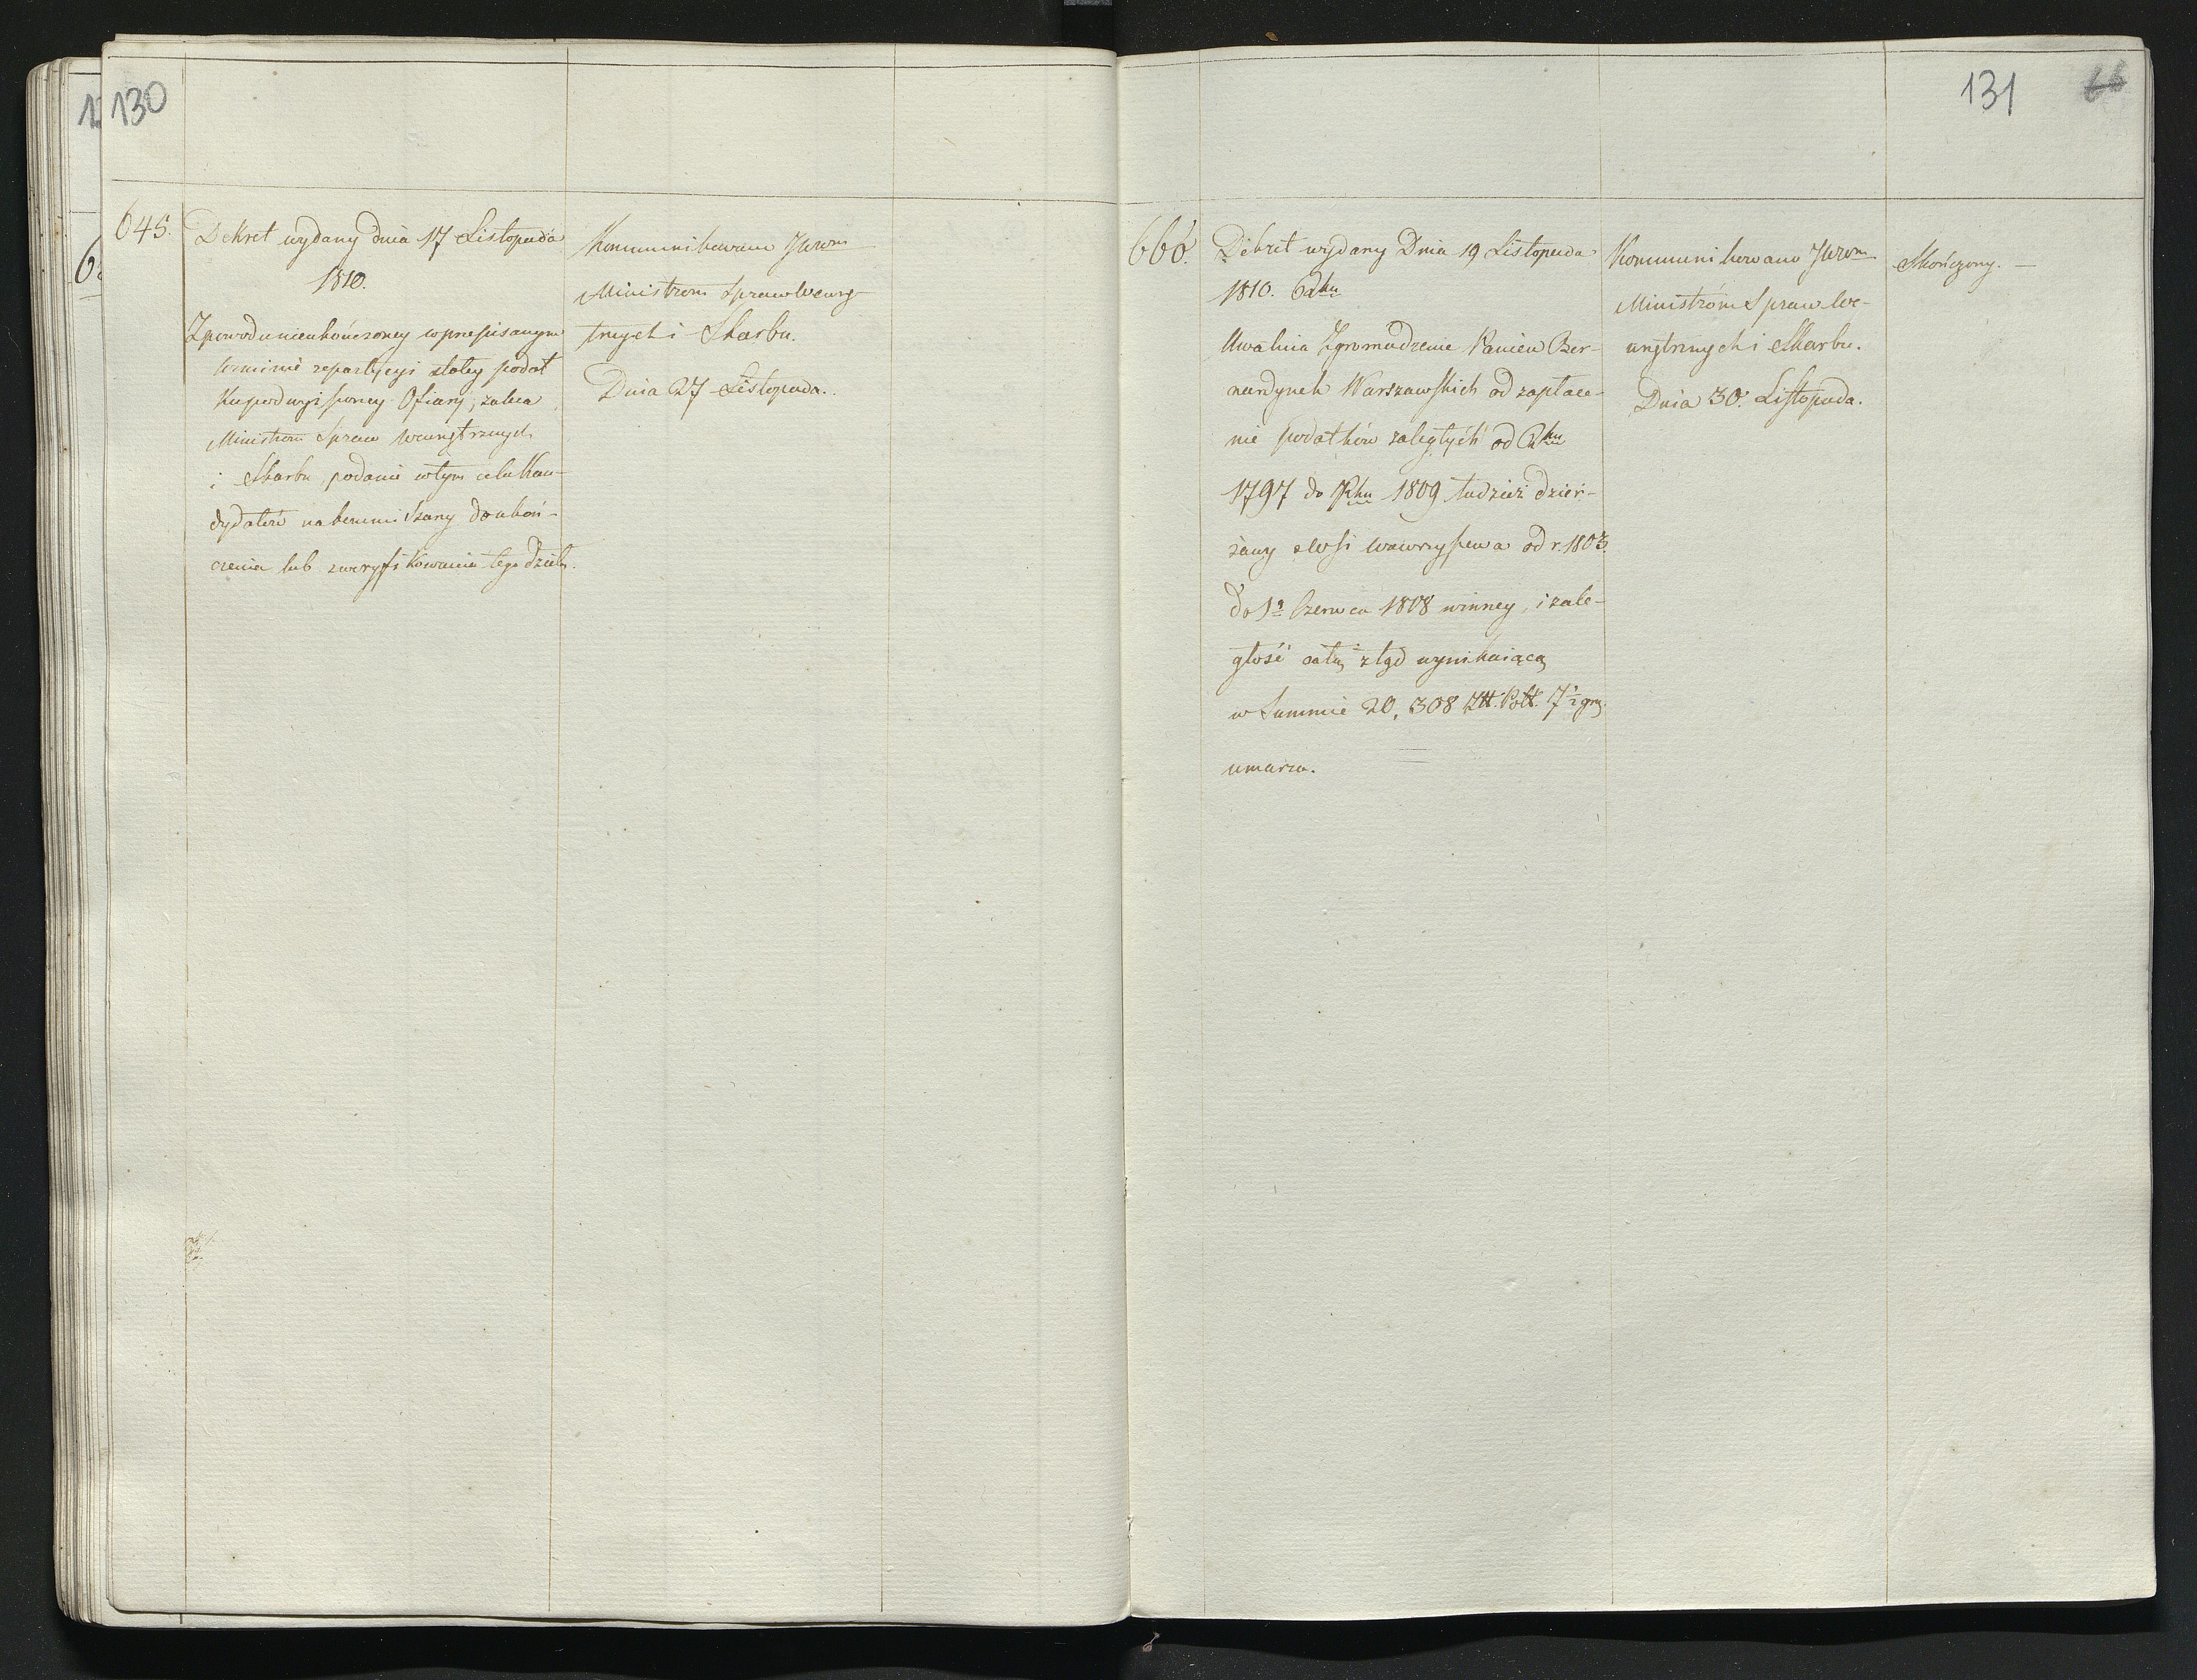 130
645.
Dekret wydany dnia 17 Listopada
1810.
Z powodu nieukończoney w przepisanym
terminie repartycyi stałey podat
ku podwyższoney Ofiary, zaleca
Ministrom Spraw Wewnętrznych
i Skarbu podanie w tym celu Kan-
dydatów na kommissarzy do ukoń-
czenia lub zweryfikowania tego dzieła.
Kommunikowano JWWm
Ministrom Spraw Wewnę-
trznych i Skarbu.
Dnia 27 Listopada.
131
66
666.
Dekret wydany Dnia 19 Listopada
1810. Rku
Uwalnia Zgromadzenie Panien Ber-
nardynek Warszawskich od zapłace-
nie podatków zaległych od Rku
1797 do Rku 1809 tudzież dzier-
żawy z Wsi Wawrzyszewa od r. 1803
do 1º Czerwca 1808 winney, i zale-
głość całą ztąd wynikaiącą
w Summie 20,308 Złł. Poll. 7½ gr.
umarza.
Kommunikowano JWWm
Ministróm Spraw We-
wnętrznych i Skarbu.
Dnia 30. Listopada.
Skończony. —